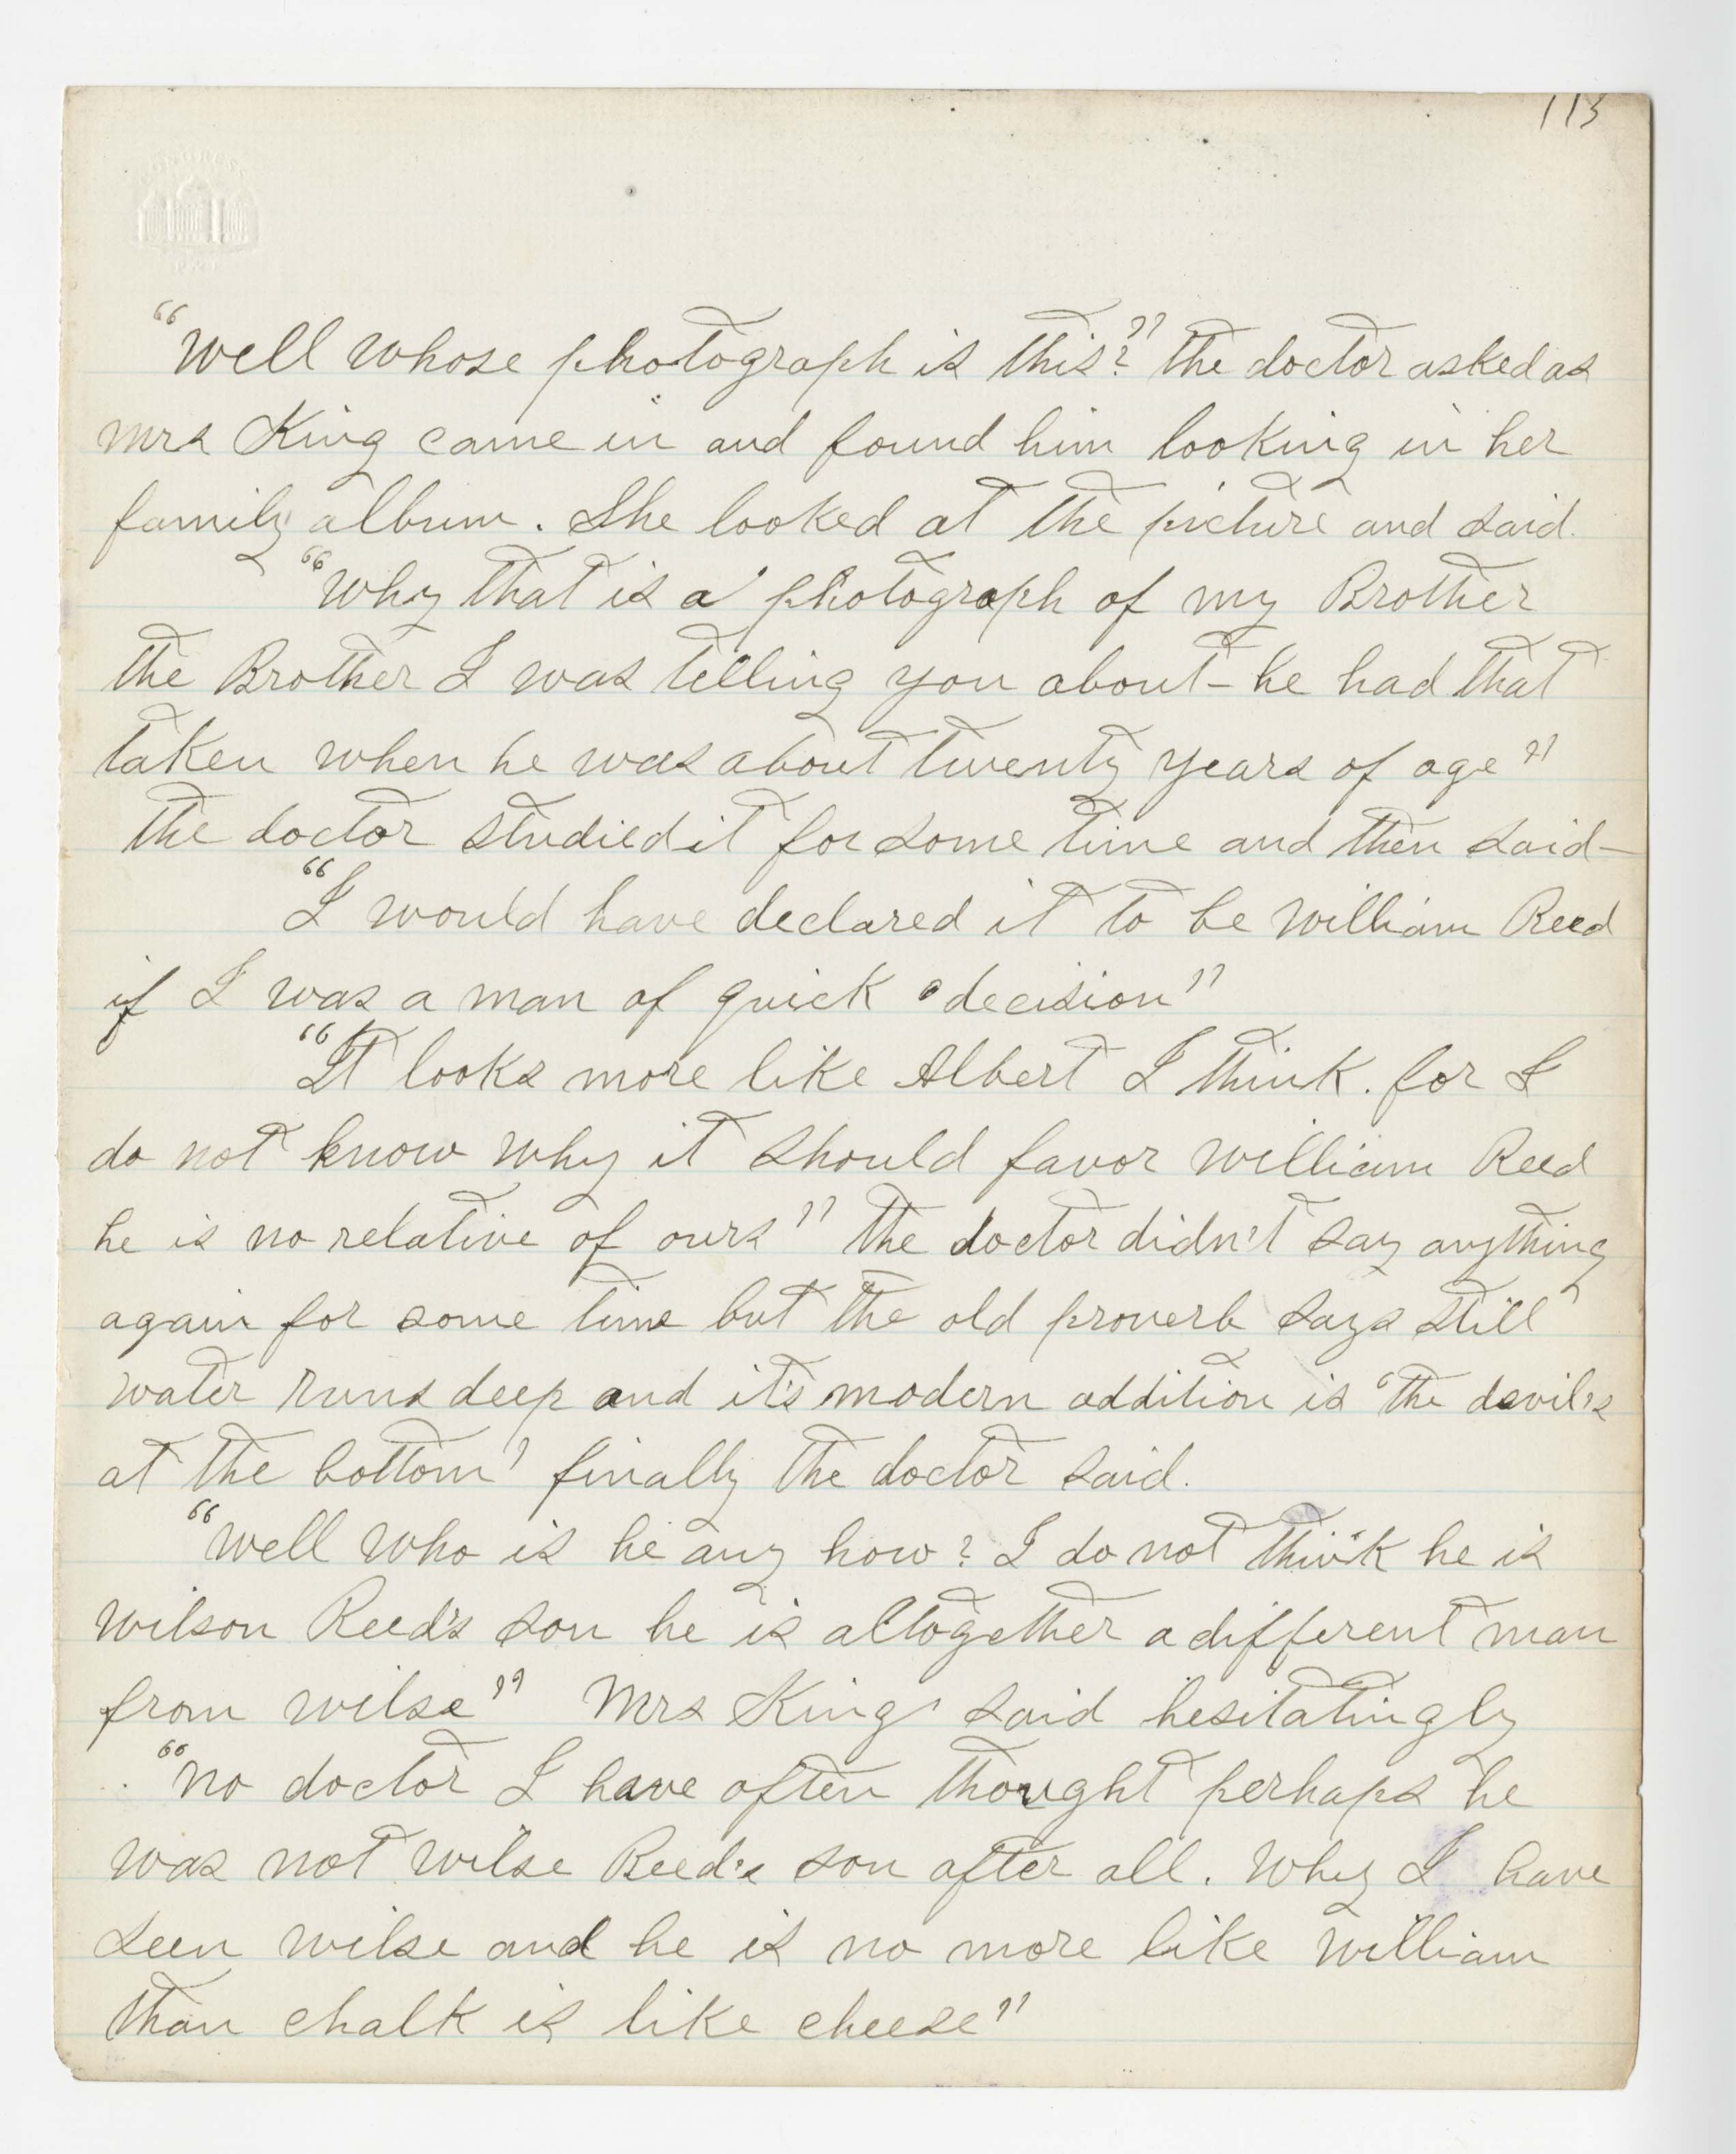 113
"Well whose photograph is this?" the doctor asked as
mrs King came in and found him looking in her
family album. She looked at the picture and said.
"Why that is a photograph of my Brother
the Brother I was telling you about - he had that
taken when he was about twenty years of age"
the doctor studied it for some time and then said -
"I would have declared it to be William Reed
if I was a man of quick decision"
"It looks more like Albert I think. for I
do not know why it should favor William Reed
he is no relative of ours" the doctor didn't say anything
again for some time but the old proverb says still
water runs deep and it's modern addition is 'the devil's
at the bottom' finally the doctor said.
"Well who is he any how? I do not think he is
Wilson Reed's son he is altogether a different man
from wilse" Mrs King said hesitatingly
"no doctor I have often thought perhaps he
was not wilse Reed's son after all. Why I have
seen wilse and he is no more like William
than chalk is like cheese"